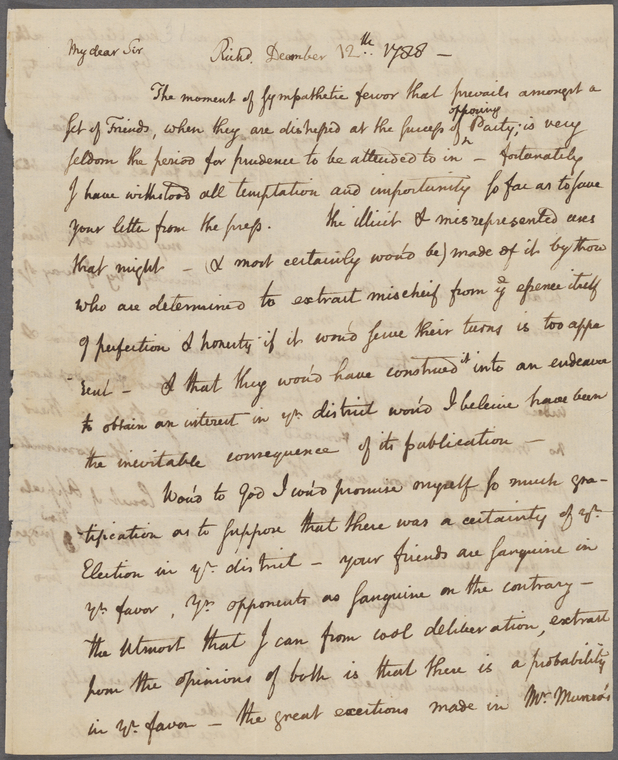 My dear Sir Richd. December 12th. 1788 —
The moment of sympathetic fervor that prevails amongst a
set of Friends, when they are distressed at the success of opposing Party, is very
seldom the period for prudence to be attended to in — fortunately
I have withstood all temptation and importunity so far as to save
your letter from the press. the illicit & misrepresented uses
that might — (& most certainly wou'd be) made of it by those
who are determined to extract mischeif from ye essence itself
of perfection & honesty if it wou'd serve their turns is too appa
rent — & that they wou'd have construed it into an endeavr
to obtain an interest in yr. district wou'd I beleive have been
the inevitable consequence of its publication —
Wou'd to God I cou'd promise myself so much gra-
tification as to suppose that there was a certainty of yr.
Election in yr. district — your friends are sanguine in
yr. favor, yr. opponents as sanguine on the contrary —
the utmost that I can from cool deliberation, extract
from the opinions of both is that there is a probability
in yr. favor — the great exertions made in Mr. Munroe's